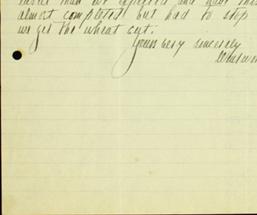 than we expected and have
almost completed but had to stop
we get the wheat cut.
Yours very sincerely